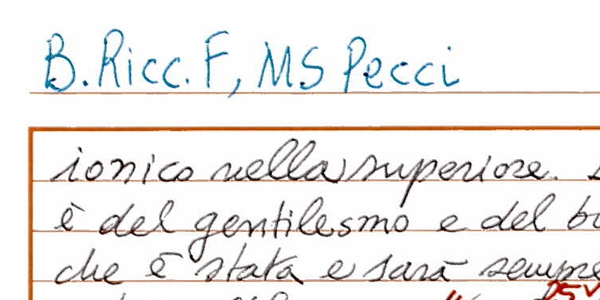 B.Ricc.F, MS Pecci
ionico nella superiore.
è del gentilesmo e del
che è stata e sarà sempre
25v